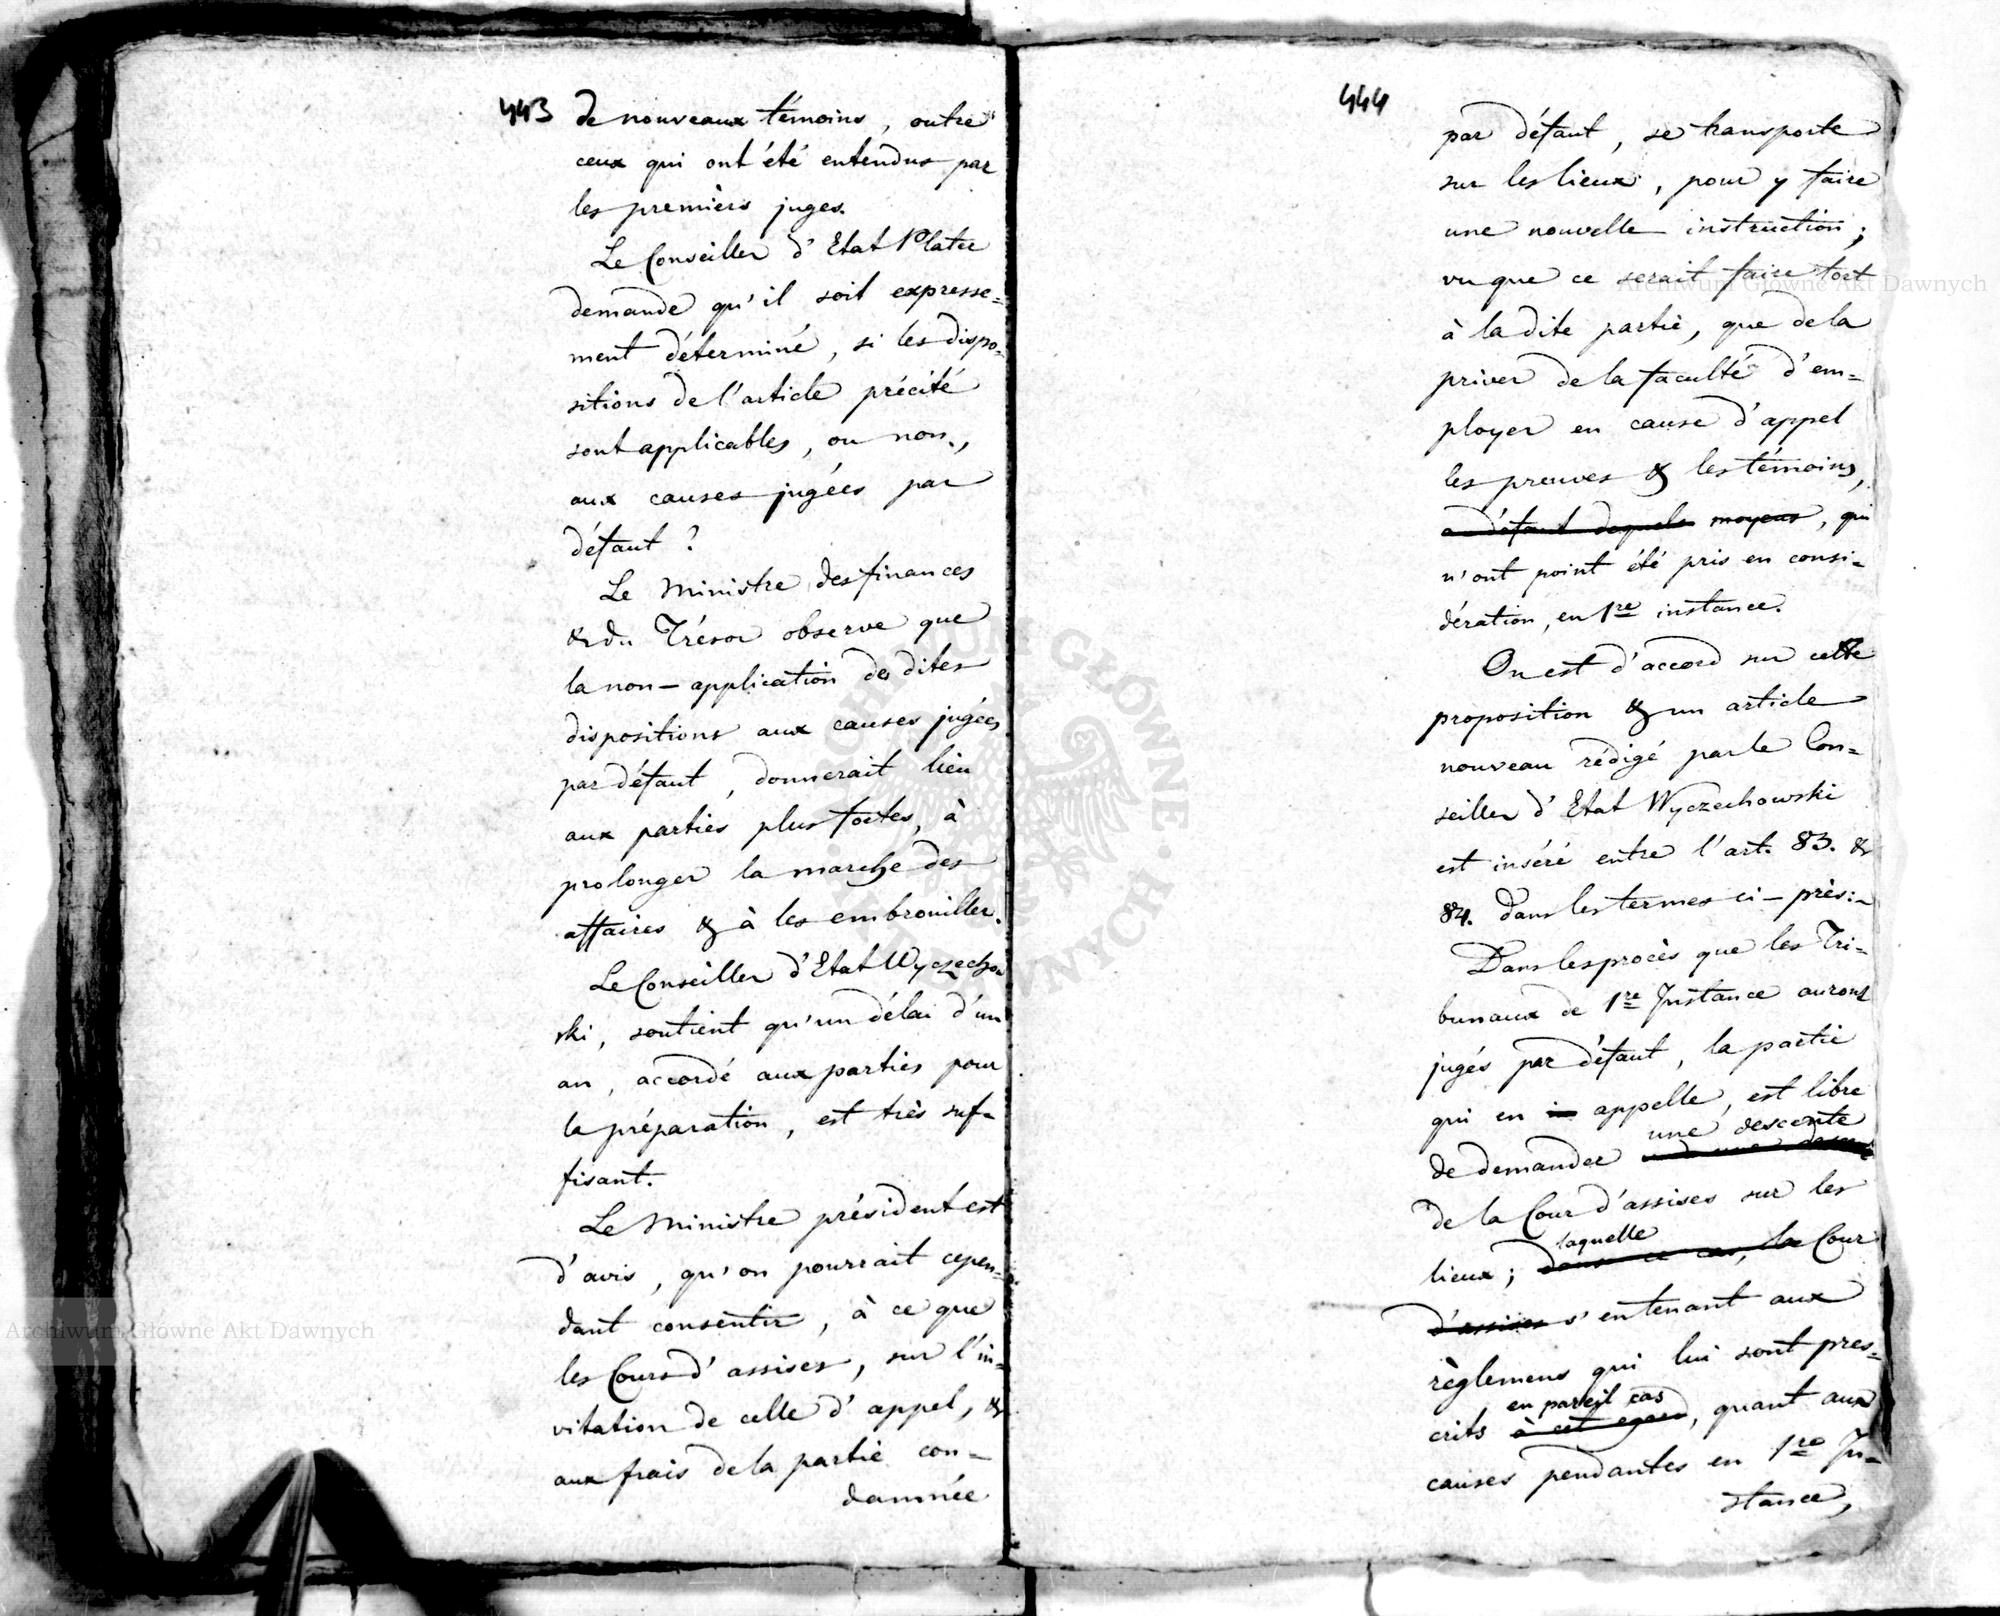 443
de nouveaux témoins, outre
ceux qui ont été entendus par
les premièrs juges.
Le Conseiller d'Etat Plater
demande qu'il soit expresse=
ment déterminé, si les dispo=
sitions de l'article précité
sont applicables, ou non,
aux causes jugées par
défaut ?
Le Ministre des finances
& du Trésor observe que
la non-application des dites
dispositions aux causes jugées
par défaut, donnerait lieu
aux partiés plus fortes, à
prolonger la marche des
affaires & à les embrouiller.
Le Conseiller d'Etat Wyczechow
ski, soutient qu'un délai d'un
an, accordé aux partiés pour
la préparation, est très suf=
fisant.
Le Ministre président est
d'avis, qu'on pourrait cepen=
dant consentir, à ce que
les Cours d'assises, sur l'in=
vitation de celle d'appel, &
aux frais de la partié con=
damnée
444
par défaut, se transporte
sur les lieux, pour y faire
une nouvelle instruction;
vu que ce serait faire tort
à la dite partié, que de la
priver de la faculté d'em=
ployer en cause d'appel
les preuves & les témoins,
a défaut desquels moyens, qui
n'ont point été pris en consi=
dération, en 1re instance.
On est d'accord sur cette
proposition & un article
nouveau rédigé par le Con=
seiller d'Etat Wyczechowski
est inséré entre l'art. 83. &
84. dans les termes ci-près:
Dans les procès que les Tri=
bunaux de 1re Instance auront
jugés par défaut, la partié
qui en appelle, est libre
une descente
de demander
de la Cour d'assises sur les
laquelle
lieux; dans ce cas, la Cour
d'assises s'en tenant aux
règlemens qui lui sont pres=
en pareil cas
crits à cet egard, quant aux
causes pendantes en 1re In=
stance,
Archiwum Główne Akt Dawnych
Archiwum Główne Akt Dawnych
ARCHIWUM GŁÓWNE AKT DAWNYCH